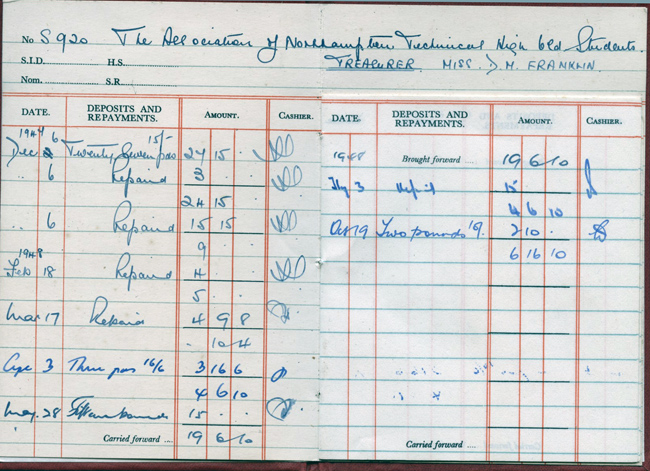 No S 920 The Association of Northampton Technical High Old Students.
S.I.D. H.S. TREASURER. MISS. D M. FRANKLIN.
Nom. S.R.
DATE. DEPOSITS AND REPAYMENTS. AMOUNT. CASHIER.
1947 6 15/-
Dec Twenty Seven pos 27 15 .
" 6 Repaid 3
24 15
" 6 Repaid 15 15
9
1948
Feb 18 Repaid 4
5 .
Mar 17 Repaid 4 9 8
. 10 4
3 Three pos 16/6 3 16 6
4 6 10
May 28 15 . .
Carried forward .... 19 6 10
DATE. DEPOSITS AND REPAYMENTS. AMOUNT. CASHIER.
1948 Brought forward .... 19 6 10
3 Repaid 15
4 6 10
Oct 19 Two pounds 2 10 .
6 16 10
Carried forward ....